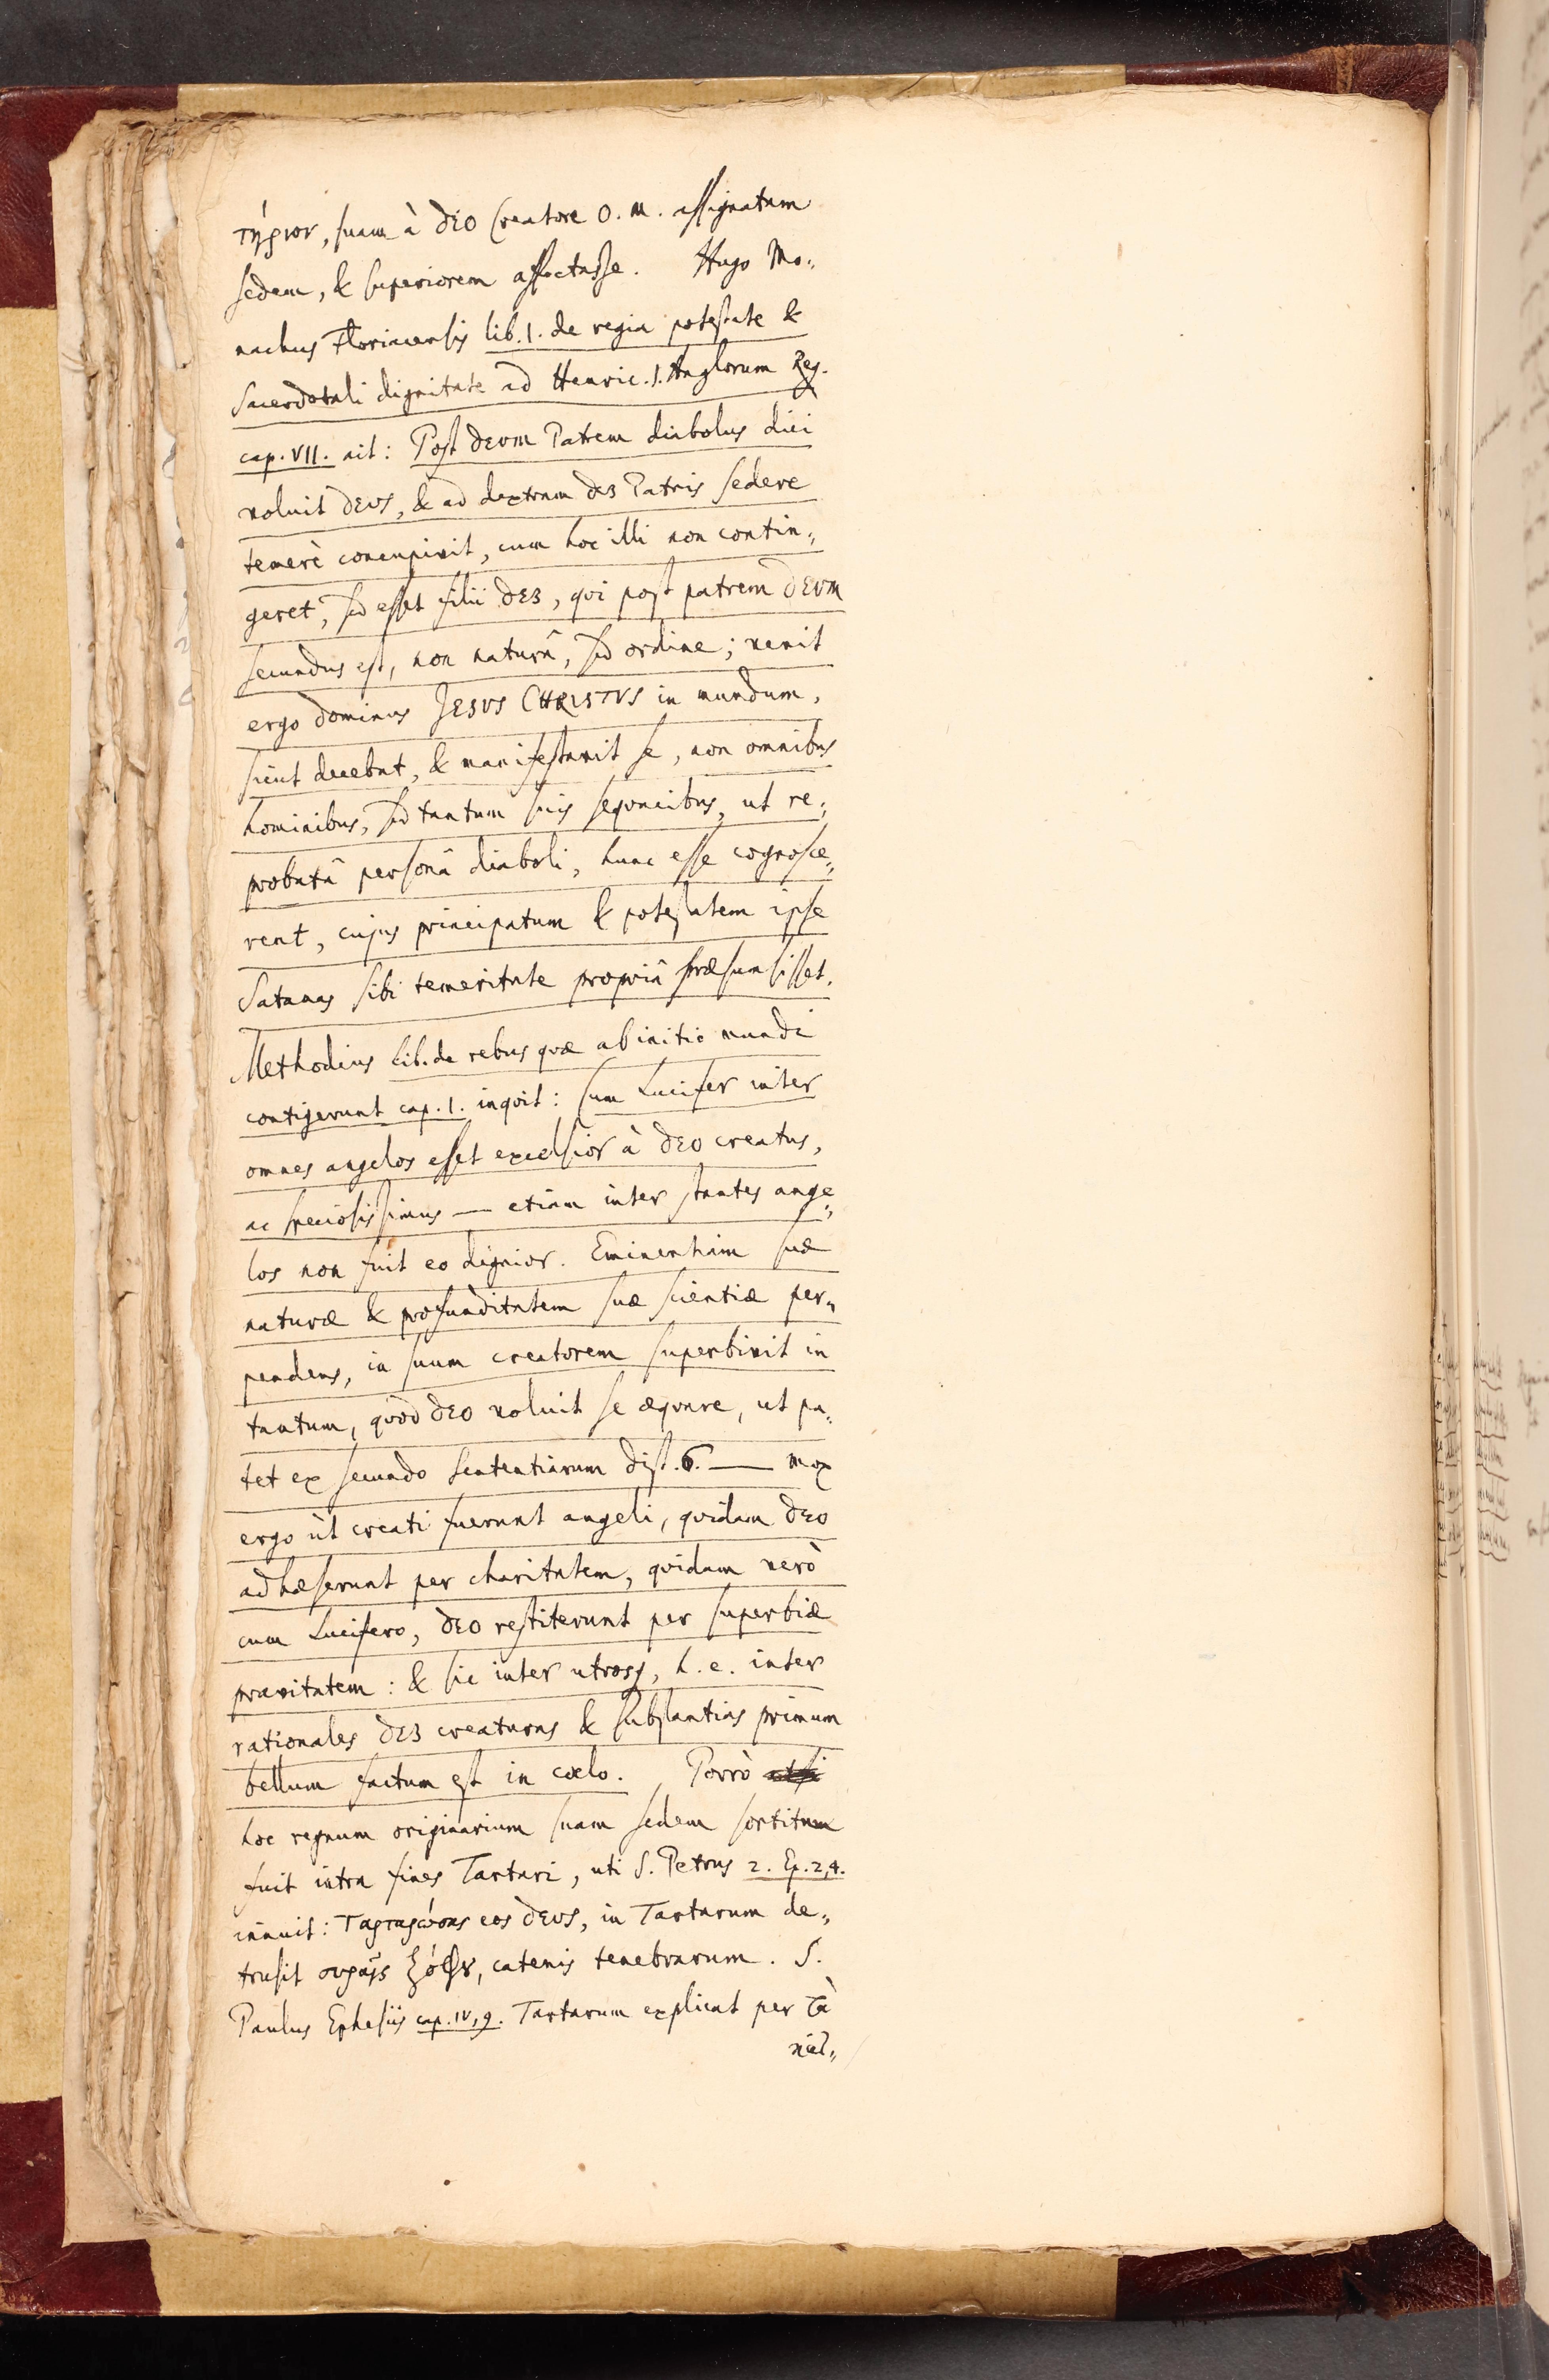 τήριον, suam à DEO Creatore O. M. assignatam
sedem, & superiorem affectasse. Hugo Mo-
nachus Floriacensis lib. I. de regia potestate &
Sacerdotali dignitate ad Henric. I. Anglorum Reg.
cap. VII. ait: Post DEVM Patrem diabolus dici
voluit DEVS, & ad dextram DEI Patris sedere
temerè concupivit, cum hoc illi non contin-
geret, sed esset filii DEI, qvi post patrem DEVM
secundus est, non naturâ, sed ordine; venit
ergo dominus JESVS CHRISTVS in mundum,
sicut decebat, & manifestavit se, non omnibus
hominibus, sed tantum suis seqvacibus, ut re-
probatâ personâ diaboli, hunc esse cognosce-
rent, cujus principatum & potestatem ipse
Satanas sibi temeritate propriâ præsumsisset.
Methodius lib. de rebus qvæ ab initio mundi
contigerunt cap. I. inqvit: Cum Lucifer inter
omnes angelos esset excelsior à DEO creatus,
ac speciosissimus — etiam inter stantes ange-
los non fuit eo dignior. Eminentiam suæ
naturæ & profunditatem suæ scientiæ per-
pendens, in suum creatorem superbivit in
tantum, qvod DEO voluit se æqvare, ut pa-
tet ex secundo sententiarum dist. 6. — mox
ergo ùt creati fuerunt angeli, qvidam DEO
adhæserunt per charitatem, qvidam verò
cum Lucifero, DEO restiterunt per superbiæ
pravitatem: & sic inter utrosq, h. e. inter
rationales DEI creaturas & substantias primum
bellum factum est in cœlo. Porrò
hoc regnum originarium suam sedem sortitum
fuit intra fines Tartari, uti S. Petrus 2. Ep. 2,4.
innuit: Ταρταρώσας eos DEVS, in Tartarum de-
trusit σειραῖς ζόφου, catenis tenebrarum. S.
Paulus Ephesiis cap. IV, 9. Tartarum explicat per τὰ
κατ-